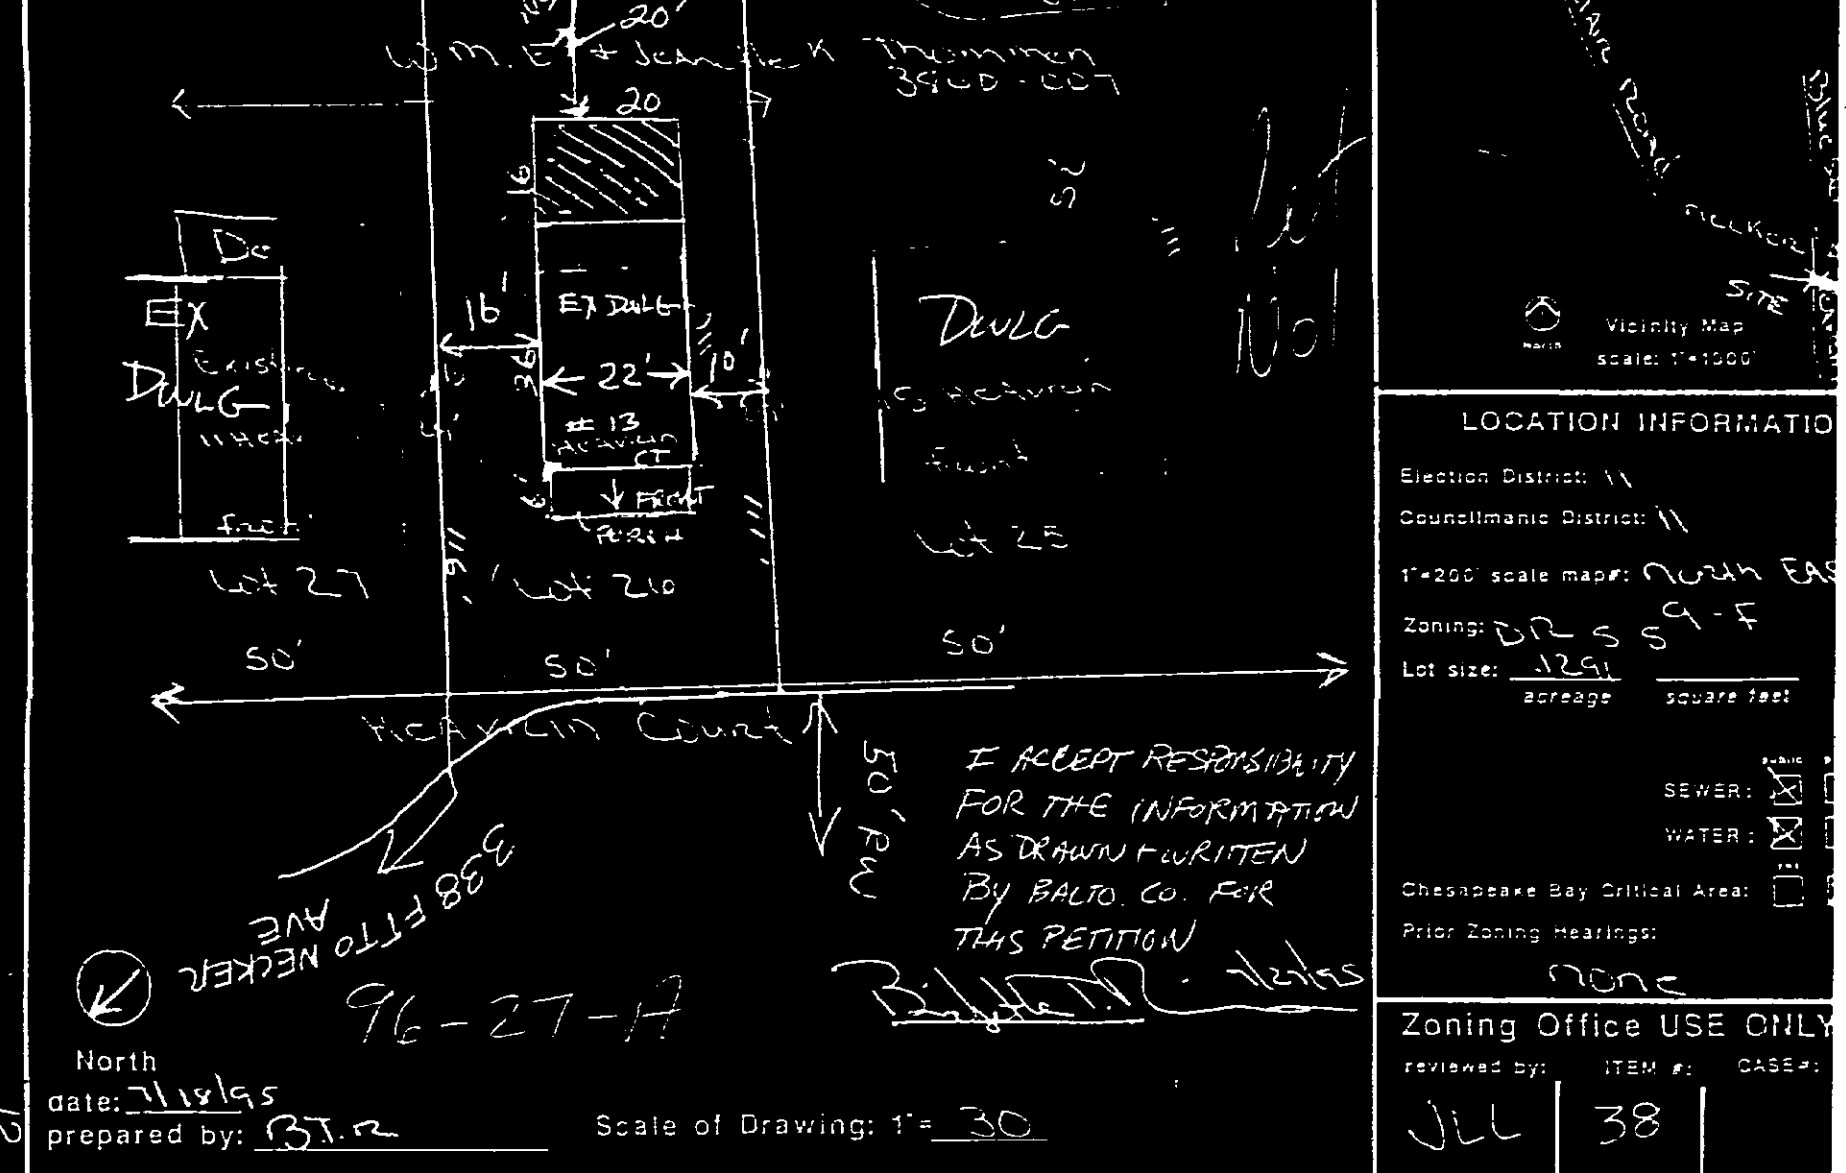 20'
WM. E + Jean K Thommen
3800-007
20
16
De
EX
DWLG
Existing
front
Lot 27
50'
16'
EX DWLG
36
22'
10'
# 13
Heavrin
CT
6'
FRONT
PORCH
Lot 26
50'
DWLG
Heavrin
Front
Lot 25
50'
Heavrin Court
50' RW
338 FT TO NECKER
AVE
I ACCEPT RESPONSIBILITY
FOR THE INFORMATION
AS DRAWN + WRITTEN
BY BALTO. CO. FOR
THIS PETITION
96-27-A
North
date: 7/18/95
prepared by: B.T.R
Scale of Drawing: 1"= 30
Road
Necker
SITE
North
Vicinity Map
scale: 1"=1000'
LOCATION INFORMATIO
Election District: 11
Councilmanic District: 11
1"=200' scale map#: North EAS
9-F
Zoning: DR 5 5
Lot size: .1291
acreage square feet
public
SEWER:
WATER:
yes
Chesapeake Bay Critical Area:
Prior Zoning Hearings:
none
Zoning Office USE ONLY
reviewed by: ITEM #: CASE#:
JLL 38